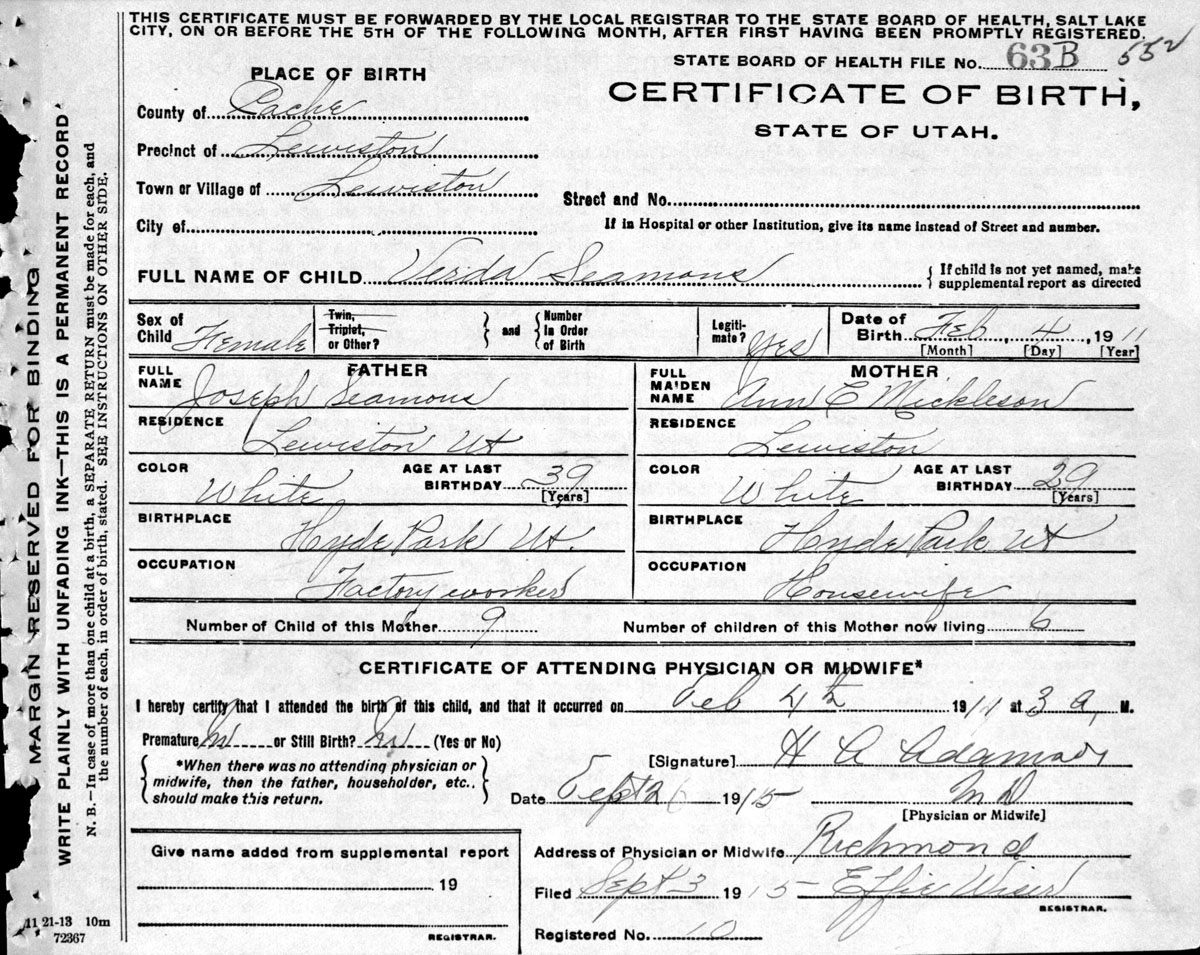 THIS CERTIFICATE MUST BE FORWARDED BY THE LOCAL REGISTRAR TO THE STATE BOARD OF HEALTH, SALT LAKE
CITY, ON OR BEFORE THE 5TH OF THE FOLLOWING MONTH, AFTER FIRST HAVING BEEN PROMPTLY REGISTERED.
STATE BOARD OF HEALTH FILE No. 63B 552
CERTIFICATE OF BIRTH,
STATE OF UTAH.
PLACE OF BIRTH
County of Cache
Precinct of Lewiston
Town or Village of Lewiston
Street and No.
City of
If in Hospital or other Institution, give its name instead of Street and number.
FULL NAME OF CHILD Verda Seamons
{ If child is not yet named, make
supplemental report as directed
Sex of
Child Female
Twin,
Triplet,
or Other?
} and { Number
in Order
of Birth
Legiti-
mate? Yes
Date of
Birth Feb, 4, 1911
[Month] [Day] [Year]
FATHER
FULL
NAME Joseph Seamons
RESIDENCE
Lewiston Ut
COLOR White
AGE AT LAST
BIRTHDAY 39
[Years]
BIRTHPLACE
Hyde Park Ut.
OCCUPATION
Factory worker
MOTHER
FULL
MAIDEN
NAME Ann E Mickleson
RESIDENCE
Lewiston
COLOR White
AGE AT LAST
BIRTHDAY 29
[Years]
BIRTHPLACE
Hyde Park Ut
OCCUPATION
Housewife
Number of Child of this Mother 9 Number of children of this Mother now living 6
CERTIFICATE OF ATTENDING PHYSICIAN OR MIDWIFE*
I hereby certify that I attended the birth of this child, and that it occurred on Feb 4th 1911 at 3 a, M.
Premature or Still Birth? (Yes or No)
{ *When there was no attending physician or
midwife, then the father, householder, etc.,
should make this return. }
[Signature] H A Adamson
Date Sept 26 1915 M D
[Physician or Midwife]
Address of Physician or Midwife Richmond
Filed Sept 3 1915 Effie Wiser
REGISTRAR.
Registered No. 10
Give name added from supplemental report
19
REGISTRAR.
MARGIN RESERVED FOR BINDING
WRITE PLAINLY WITH UNFADING INK—THIS IS A PERMANENT RECORD
N. B.—In case of more than one child at a birth, a SEPARATE RETURN must be made for each, and
the number of each, in order of birth, stated. SEE INSTRUCTIONS ON OTHER SIDE.
11 21-13 10m
72367